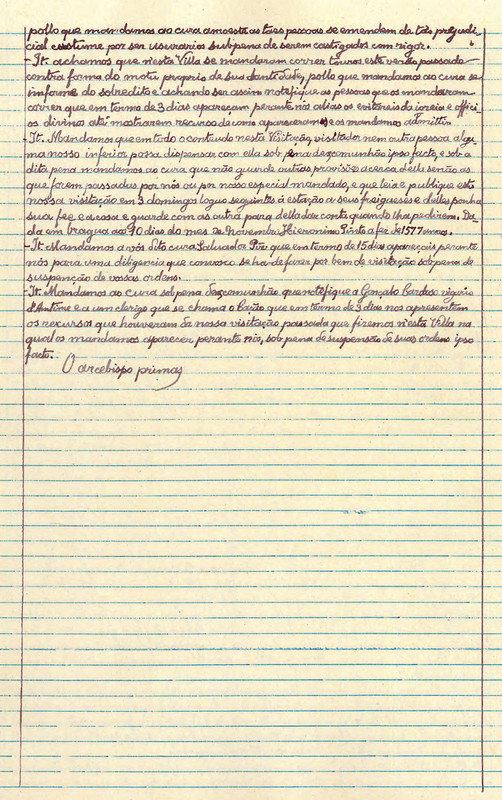 pollo que mandamos ao cura amoeste as taes pessoas se emendem de tão prejudi-
cial custume por ser usurarios sub pena de serem castigados com rigor.
- It. achamos que n'esta Villa se mandaram correr touros este verão passado
contra forma do motu proprio de Sua Santidade, pollo que mandamos ao cura se
informe do sobredito e achando ser assim notefique as pessoas que os mandaram
correr que em termo de 3 dias apareçam perante nós alias os evitareis da igreia e offici-
os divinos até mostrarem recurso de como apareseram e os mandamos admittir.
- It. Mandamos que em todo o conteudo nesta Visitação, visitador nem outra pessoa algu-
ma nosso inferior possa dispensar com ella sob pena de excomunhão ipso facto, e sob a
dita pena mandamos ao cura que não guarde outras provisões acerca della senão as
que forem passadas por nós ou por nosso especial mandado, e que leia e publique esta
nossa visitação em 3 domingos loguo seguintes á estação a seus freigueses e dellas ponha
sua fee e a cosa e guarde com as outras para della dar conta quando lha pedirem. Da-
da em bragua aos 10 dias do mes de Novembro Hieronimo Pinto a fez de 1577 annos.
- It. Mandamos a vós dito cura Salvador Pires que em termo de 15 dias apareçais perante
nós para uma diligencia que convosco se ha de fazer por bem de visitação sob pena de
suspenção de vossas ordens.
- It. Mandamos ao cura sob pena de excomunhão que notefique a Gonçalo Cardoso vigario
d'Antime e a um clerigo que se chama o Cação que em termo de 3 dias nos apresentem
os recursos que houveram da nossa visitação passada que fizemos n'esta Villa na
qual os mandamos aparecer perante nós, sob pena de suspensão de suas ordens ipso
facto.-
O arcebispo primas